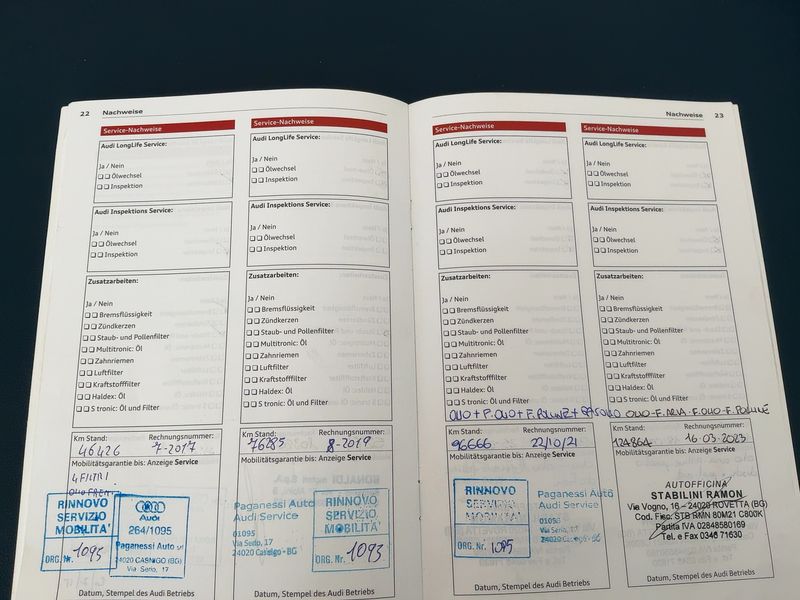 22 Nachweise
Service-Nachweise
Audi LongLife Service:
Ja / Nein
Ölwechsel
Inspektion
Audi Inspektions Service:
Ja / Nein
Ölwechsel
Inspektion
Zusatzarbeiten:
Ja / Nein
Bremsflüssigkeit
Zündkerzen
Staub- und Pollenfilter
Multitronic: Öl
Zahnriemen
Luftfilter
Kraftstofffilter
Haldex: Öl
S tronic: Öl und Filter
Km Stand: Rechnungsnummer:
46426 7-2017
Mobilitätsgarantie bis: Anzeige Service
4 FILTRI
OLIO
RINNOVO
SERVIZIO
MOBILITA'
ORG. Nr. 1095
Audi
264/1095
Paganessi Auto
24020 CASNIGO (BG)
Via Serio, 17
Datum, Stempel des Audi Betriebs
Service-Nachweise
Audi LongLife Service:
Ja / Nein
Ölwechsel
Inspektion
Audi Inspektions Service:
Ja / Nein
Ölwechsel
Inspektion
Zusatzarbeiten:
Ja / Nein
Bremsflüssigkeit
Zündkerzen
Staub- und Pollenfilter
Multitronic: Öl
Zahnriemen
Luftfilter
Kraftstofffilter
Haldex: Öl
S tronic: Öl und Filter
Km Stand: Rechnungsnummer:
76285 8-2019
Mobilitätsgarantie bis: Anzeige Service
Paganessi Auto
Audi Service
01095
Via Serio, 17
24020 Casnigo - BG
RINNOVO
SERVIZIO
MOBILITA'
ORG. Nr. 1095
Datum, Stempel des Audi Betriebs
Nachweise 23
Service-Nachweise
Audi LongLife Service:
Ja / Nein
Ölwechsel
Inspektion
Audi Inspektions Service:
Ja / Nein
Ölwechsel
Inspektion
Zusatzarbeiten:
Ja / Nein
Bremsflüssigkeit
Zündkerzen
Staub- und Pollenfilter
Multitronic: Öl
Zahnriemen
Luftfilter
Kraftstofffilter
Haldex: Öl
S tronic: Öl und Filter
OLIO + F. OLIO + F. POLLINE +
Km Stand: Rechnungsnummer:
96666 22/10/21
Mobilitätsgarantie bis: Anzeige Service
RINNOVO
SERVIZIO
MOBILITA'
ORG. Nr. 1095
Paganessi Auto
Audi Service
01095
Via Serio, 17
Datum, Stempel des Audi Betriebs
Service-Nachweise
Audi LongLife Service:
Ja / Nein
Ölwechsel
Inspektion
Audi Inspektions Service:
Ja / Nein
Ölwechsel
Inspektion
Zusatzarbeiten:
Ja / Nein
Bremsflüssigkeit
Zündkerzen
Staub- und Pollenfilter
Multitronic: Öl
Zahnriemen
Luftfilter
Kraftstofffilter
Haldex: Öl
S tronic: Öl und Filter
OLIO - F. ARIA - F. OLIO - F. POLLINE
Km Stand: Rechnungsnummer:
124864 16-03-2023
Mobilitätsgarantie bis: Anzeige Service
AUTOFFICINA
STABILINI RAMON
Via Vogno, 16 - 24020 ROVETTA (BG)
Cod. Fisc. STB RMN 80M21 C800K
Partita IVA 02848580169
Tel. e Fax 0346 71630
Datum, Stempel des Audi Betriebs